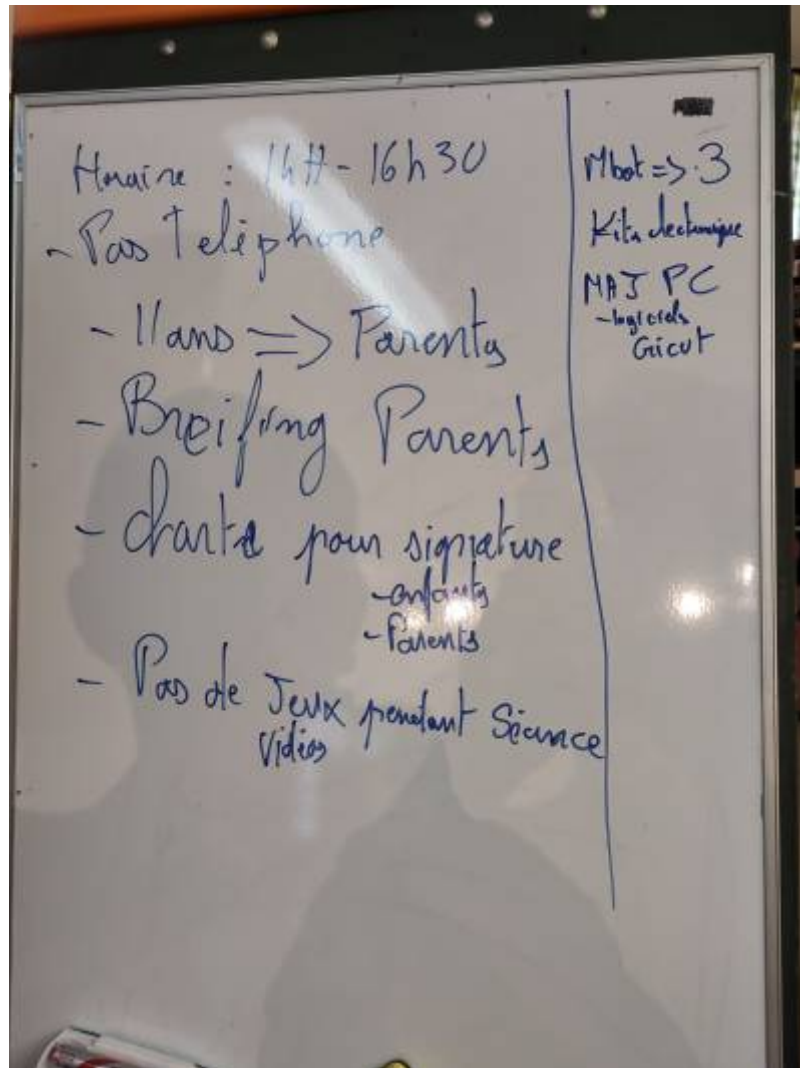 Horaire : 14H - 16h30
- Pas Téléphone
- 11ans => Parents
- Breifing Parents
- charte pour signature
- enfants
- Parents
- Pas de Jeux pendant Séance
Vidéos
Mbot => 3
Kits electronique
MAJ PC
- logiciels